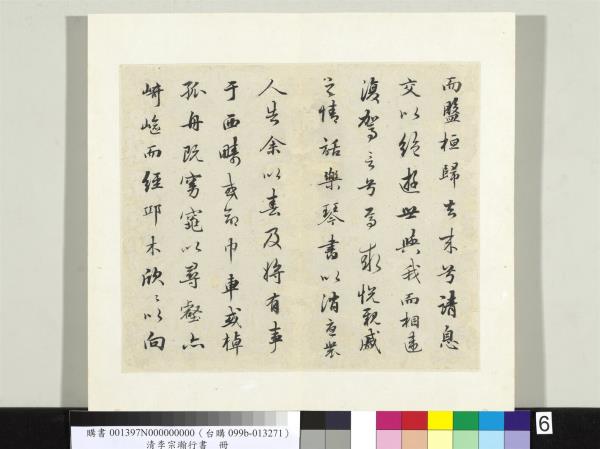 而盤桓歸去來兮請息
交以絕遊世與我而相違
復駕言兮焉求悅親戚
之情話樂琴書以消憂農
人告余以春及將有事
于西疇或命巾車或棹
孤舟既窈窕以尋壑亦
崎嶇而經邱木欣〻以向
購書 001397N000000000（台購 099b-013271）
清李宗瀚行書 冊
6